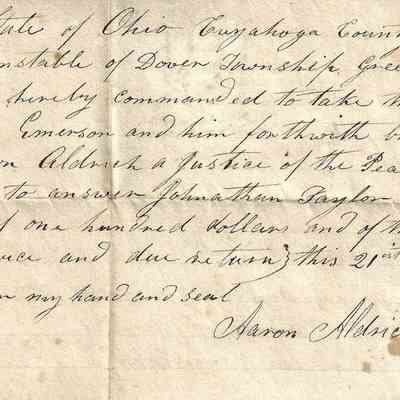 tate of Ohio Cuyahoga Count
nstable of Dover Township Gree
hereby commanded to take th
Emerson and him forthwith b
on Aldrich a Justice of the Pea
to answer Johnathan Taylor
f one hundred dollars and of th
vice and due return this 21st
r my hand and seal
Aaron Aldric